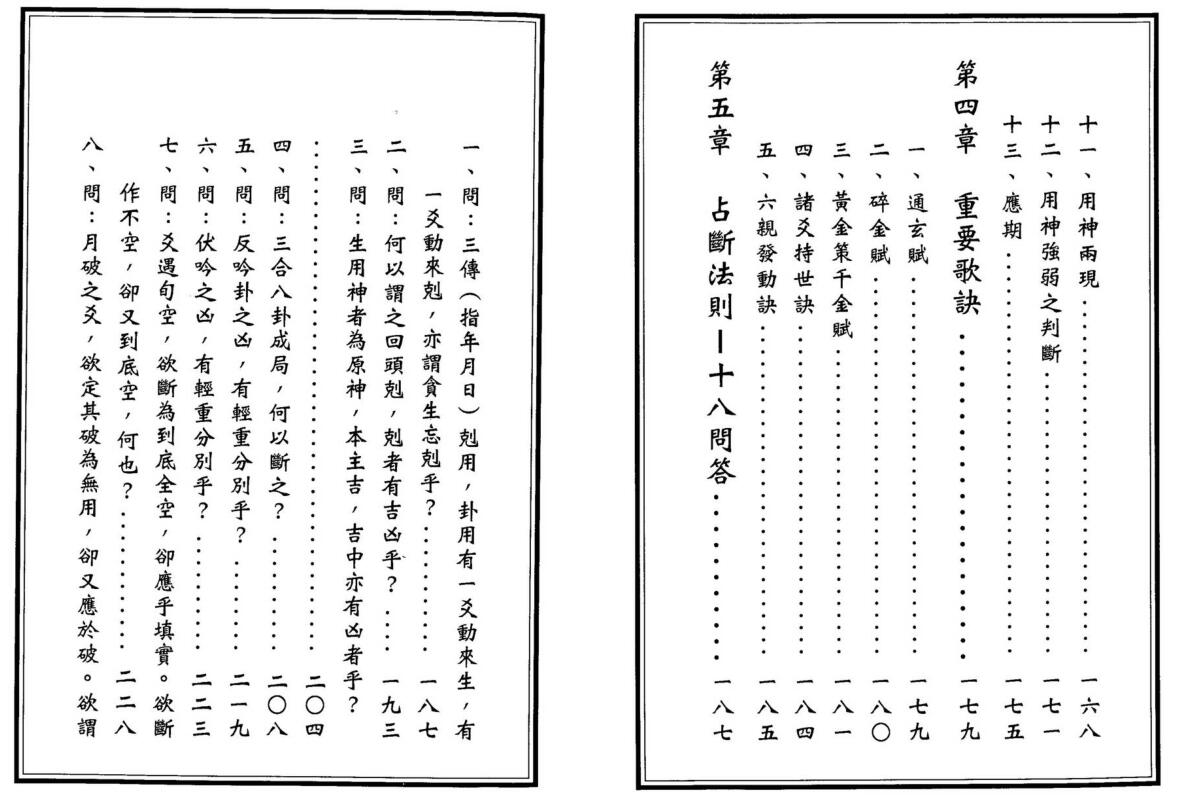 十一、用神兩現……一六八
十二、用神強弱之判斷……一七一
十三、應期……一七五
第四章　重要歌訣……一七九
一、通玄賦……一七九
二、碎金賦……一八〇
三、黃金策千金賦……一八一
四、諸爻持世訣……一八四
五、六親發動訣……一八五
第五章　占斷法則－十八問答……一八七
一、問：三傳（指年月日）剋用，卦用有一爻動來生，有
一爻動來剋，亦謂貪生忘剋乎？……一八七
二、問：何以謂之回頭剋，剋者有吉凶乎？……一九三
三、問：生用神者為原神，本主吉，吉中亦有凶者乎？
……二〇四
四、問：三合八卦成局，何以斷之？……二〇八
五、問：反吟卦之凶，有輕重分別乎？……二一九
六、問：伏吟之凶，有輕重分別乎？……二二三
七、問：爻遇旬空，欲斷為到底全空，卻應乎填實。欲斷
作不空，卻又到底空，何也？……二二八
八、問：月破之爻，欲定其破為無用，卻又應於破。欲謂